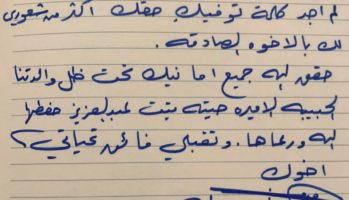 لم اجد كلمة توفيك حقك اكثر من شعوري
لك بالاخوه الصادقه.
حقق الله جميع امانيك تحت ظل والدتنا
الحبيبه الاميره حصه بنت عبدالعزيز حفظها
الله ورعاها. وتقبلي فائق تحياتي
اخوك